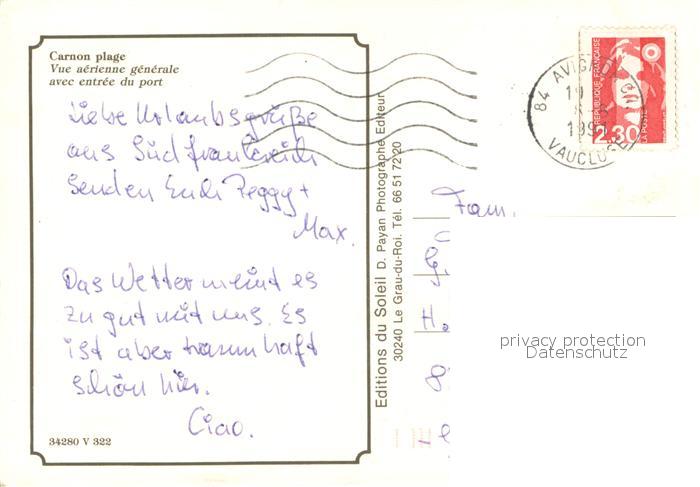 Carnon plage
Vue aérienne générale
avec entrée du port
Liebe Urlaubsgrüße
aus Südfrankreich
senden Euch Peggy +
Max.
Das Wetter meint es
zu gut mit uns. Es
ist aber traumhaft
schön hier.
Ciao.
34280 V 322
Editions du Soleil D. Payan Photographe Editeur
30240 Le Grau-du-Roi. Tél. 66 51 72 20
84 AVIGNON
19
1991
VAUCLUSE
REPUBLIQUE FRANÇAISE
2,30
LA POSTE
Fam.
G
H.
privacy protection
Datenschutz